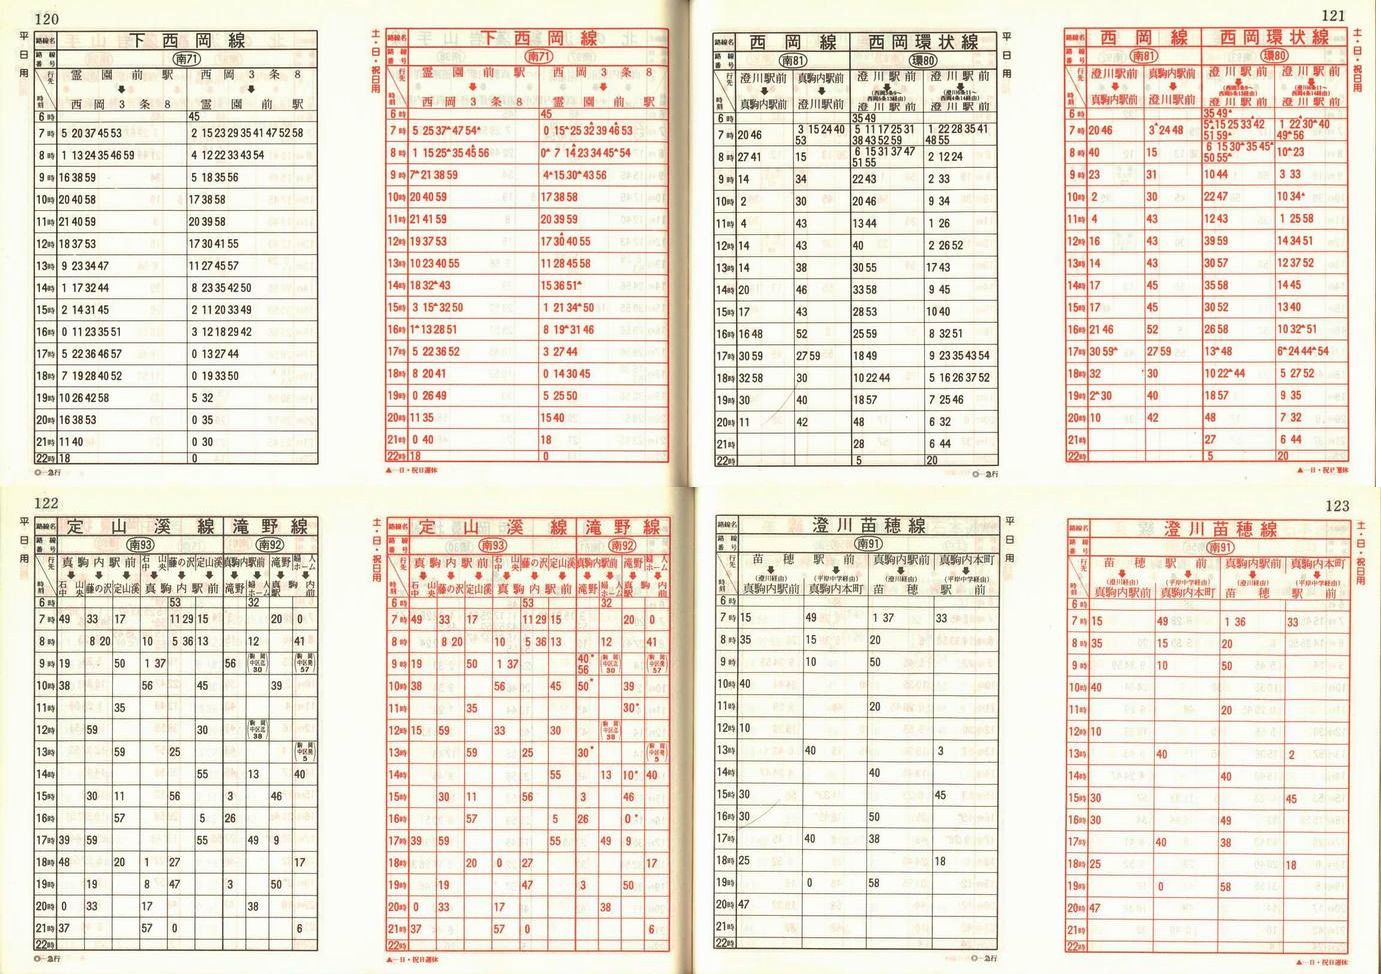 120
平日用
路線名 下西岡線
路線番号 南71
行先 時刻 霊園前駅 西岡3条8
西岡3条8 霊園前駅
6時 45
7時 5 20 37 45 53 2 15 23 29 35 41 47 52 58
8時 1 13 24 35 46 59 4 12 22 33 43 54
9時 16 38 59 5 18 35 56
10時 20 40 58 17 38 58
11時 21 40 59 20 39 58
12時 18 37 53 17 30 41 55
13時 9 23 34 47 11 27 45 57
14時 1 17 32 44 8 23 35 42 50
15時 2 14 31 45 2 11 20 33 49
16時 0 11 23 35 51 3 12 18 29 42
17時 5 22 36 46 57 0 13 27 44
18時 7 19 28 40 52 0 19 33 50
19時 10 26 42 58 5 32
20時 16 38 53 0 35
21時 11 40 0 30
22時 18 0
土・日・祝日用
路線名 下西岡線
路線番号 南71
行先 時刻 霊園前駅 西岡3条8
西岡3条8 霊園前駅
6時 45
7時 5 25 37▲47 54▲ 0 15▲25 32 39 46 53
8時 1 15 25▲35 45 56 0▲ 7 14 23 34 45▲54
9時 7▲21 38 59 4▲15 30▲43 56
10時 20 40 59 17 38 58
11時 21 41 59 20 39 59
12時 19 37 53 17 30 40 55
13時 10 23 40 55 11 28 45 58
14時 18 32▲43 15 36 51▲
15時 3 15▲32 50 1 21 34▲50
16時 1▲13 28 51 8 19▲31 46
17時 5 22 36 52 3 27 44
18時 8 20 41 0 14 30 45
19時 0 26 49 5 25 50
20時 11 35 15 40
21時 0 40 18
22時 18 0
▲―日・祝日運休
121
平日用
路線名 西岡線 西岡環状線
路線番号 南81 環80
行先 時刻 澄川駅前 真駒内駅前 澄川駅前 澄川駅前
真駒内駅前 澄川駅前 澄川駅前 澄川駅前
6時 35 49
7時 20 46 3 15 24 40 53 5 11 17 25 31 38 43 52 59 1 22 28 35 41 48 55
8時 27 41 15 6 15 31 37 47 51 55 2 12 24
9時 14 34 22 43 2 33
10時 2 30 20 46 9 34
11時 4 43 13 44 1 26
12時 14 43 40 2 26 52
13時 14 38 30 55 17 43
14時 20 46 33 58 9 45
15時 17 43 28 53 10 40
16時 16 48 52 25 59 8 32 51
17時 30 59 27 59 18 49 9 23 35 43 54
18時 32 58 30 10 22 44 5 16 26 37 52
19時 30 40 18 57 7 25 46
20時 11 42 48 6 32
21時 28 6 44
22時 5 20
土・日・祝日用
路線名 西岡線 西岡環状線
路線番号 南81 環80
行先 時刻 澄川駅前 真駒内駅前 澄川駅前 澄川駅前
真駒内駅前 澄川駅前 澄川駅前 澄川駅前
6時 35 49▲
7時 20 46 3▲24 48 5▲15 25 33 42 51 59▲ 1 22 30▲40 49▲56
8時 40 15 6 15 30▲35 45▲ 50 55▲ 10▲23
9時 23 31 10 44 3 33
10時 2 30 22 47 10 34▲
11時 4 43 12 43 1 25 58
12時 16 43 39 59 14 34 51
13時 14 43 30 57 12 37 52
14時 17 45 35 58 14 45
15時 17 45 30 52 13 40
16時 21 46 52 26 58 10 32▲51
17時 30 59▲ 27 59 13▲48 6▲24 44▲54
18時 32 30 10 22▲44 5 27 52
19時 2▲30 40 18 57 9 35
20時 10 42 48 7 32
21時 27 6 44
22時 5 20
122
平日用
路線名 定山渓線 滝野線
路線番号 南93 南92
行先 時刻 真駒内駅前 石山中央 藤の沢 定山渓 真駒内駅前 滝野 婦人ホーム
石山中央 藤の沢 定山渓 真駒内駅前 滝野 婦人ホーム 真駒内駅前
6時 53 32
7時 49 33 17 11 29 15 20 0
8時 8 20 10 5 36 13 12 41
9時 19 50 1 37 56 30 57
10時 38 56 45 39
11時 35
12時 59 30 38
13時 59 25 5
14時 55 13 40
15時 30 11 56 3 46
16時 57 5 26
17時 39 59 55 49 9
18時 48 20 1 27 17
19時 19 8 47 3 50
20時 0 33 17 38
21時 37 57 0 6
22時
土・日・祝日用
路線名 定山渓線 滝野線
路線番号 南93 南92
行先 時刻 真駒内駅前 石山中央 藤の沢 定山渓 真駒内駅前 滝野 婦人ホーム
石山中央 藤の沢 定山渓 真駒内駅前 滝野 婦人ホーム 真駒内駅前
6時 53 32
7時 49 33 17 11 29 15 20 0
8時 8 20 10 5 36 13 12 41
9時 19 50 1 37 40* 56 30 57
10時 38 56 45 50* 39
11時 35 30*
12時 15 59 33 30 38
13時 59 25 30* 5
14時 55 13 10* 40
15時 30 11 56 3 46
16時 57 5 26 0*
17時 39 59 55 49 9
18時 20 0 27 17
19時 19 47 3 50
20時 0 33 17 38
21時 37 57 0 6
22時
▲―日・祝日運休
123
平日用
路線名 澄川苗穂線
路線番号 南91
行先 時刻 苗穂駅前 真駒内駅前 真駒内本町
(澄川経由) (平岸中学経由) (澄川経由) (平岸中学経由)
真駒内駅前 真駒内本町 苗穂駅前
6時
7時 15 49 1 37 33
8時 35 15 20
9時 10 50
10時 40
11時 20
12時 10
13時 40 3
14時 40
15時 30 45
16時 30 50
17時 40 38
18時 25 18
19時 0 58
20時 47
21時
22時
土・日・祝日用
路線名 澄川苗穂線
路線番号 南91
行先 時刻 苗穂駅前 真駒内駅前 真駒内本町
(澄川経由) (平岸中学経由) (澄川経由) (平岸中学経由)
真駒内駅前 真駒内本町 苗穂駅前
6時
7時 15 49 1 36 33
8時 35 15 20
9時 10 50
10時 40
11時 20
12時 10
13時 40 2
14時 40
15時 30 45
16時 30 49
17時 40 38
18時 25 18
19時 0 58
20時 47
21時
22時
▲―日・祝日運休